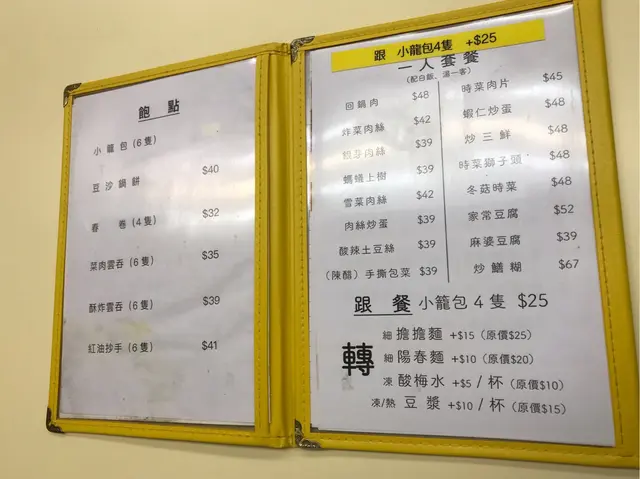 飽 點
小籠包(6隻)
豆沙鍋餅 $40
春 卷(4隻) $32
菜肉雲吞(6隻) $35
酥炸雲吞(6隻) $39
紅油抄手(6隻) $41
跟 小龍包4隻 +$25
二人套餐
(配白飯、湯一客)
回鍋肉 $48
炸菜肉絲 $42
銀芽肉絲 $39
螞蟻上樹 $39
雪菜肉絲 $42
肉絲炒蛋 $39
酸辣土豆絲 $39
(陳醋)手撕包菜 $39
時菜肉片 $45
蝦仁炒蛋 $48
炒三鮮 $48
時菜獅子頭 $48
冬菇時菜 $48
家常豆腐 $52
麻婆豆腐 $39
炒鱔糊 $67
跟 餐 小籠包 4 隻 $25
轉
細 擔擔麵 +$15 (原價$25)
細 陽春麵 +$10 (原價$20)
凍 酸梅水 +$5 / 杯 (原價$10)
凍/熱 豆 漿 +$10 / 杯 (原價$15)